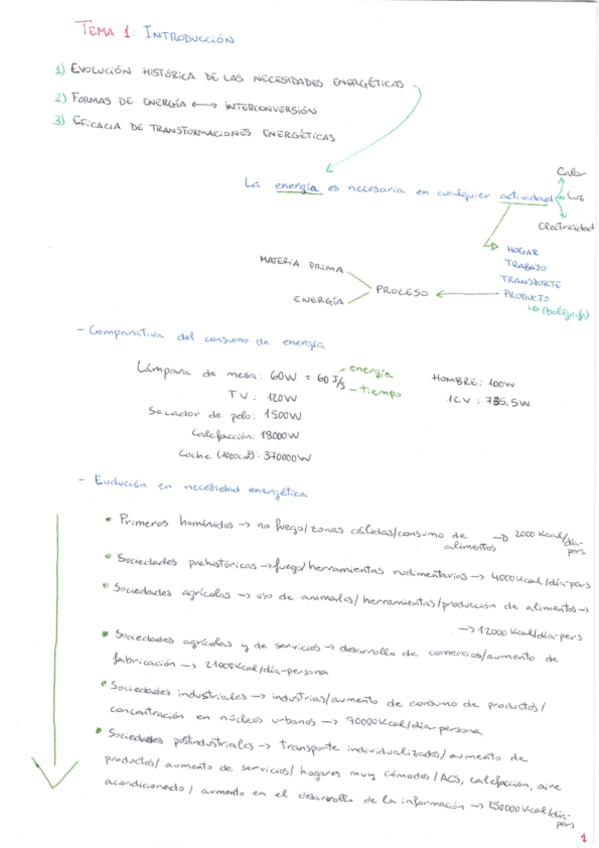 TEMA 1: INTRODUCCIÓN
1) EVOLUCIÓN HISTÓRICA DE LAS NECESIDADES ENERGÉTICAS
2) FORMAS DE ENERGÍA ↔ INTERCONVERSIÓN
3) EFICACIA DE TRANSFORMACIONES ENERGÉTICAS
La energía es necesaria en cualquier actividad
Calor
Luz
Electricidad
HOGAR
TRABAJO
TRANSPORTE
PRODUCTO
(bolígrafo)
MATERIA PRIMA
ENERGÍA
PROCESO
- Comparativa del consumo de energía
Lámpara de mesa: 60W = 60 J/s
energía
tiempo
TV: 120W
Secador de pelo: 1500W
Calefacción: 18000W
Coche: 370000W
HOMBRE: 100W
1CV: 735,5W
- Evolución en necesidad energética
• Primeros homínidos → no fuego/zonas cálidas/consumo de alimentos → 2000 Kcal/día-pers
• Sociedades prehistóricas → fuego/herramientas rudimentarias → 4000Kcal/día-pers
• Sociedades agrícolas → uso de animales/herramientas/producción de alimentos →
→ 12000 Kcal/día-pers
• Sociedades agrícolas y de servicios → desarrollo de comercios/aumento de
fabricación → 21000Kcal/día-persona
• Sociedades industriales → industrias/aumento de consumo de productos/
concentración en núcleos urbanos → 90000Kcal/día-persona
• Sociedades postindustriales → transporte individualizado/aumento de
productos/ aumento de servicios/ hogares muy cómodos/ACS, calefacción, aire
acondicionado/ aumento en el desarrollo de la información → 250000Kcal/día-pers
1